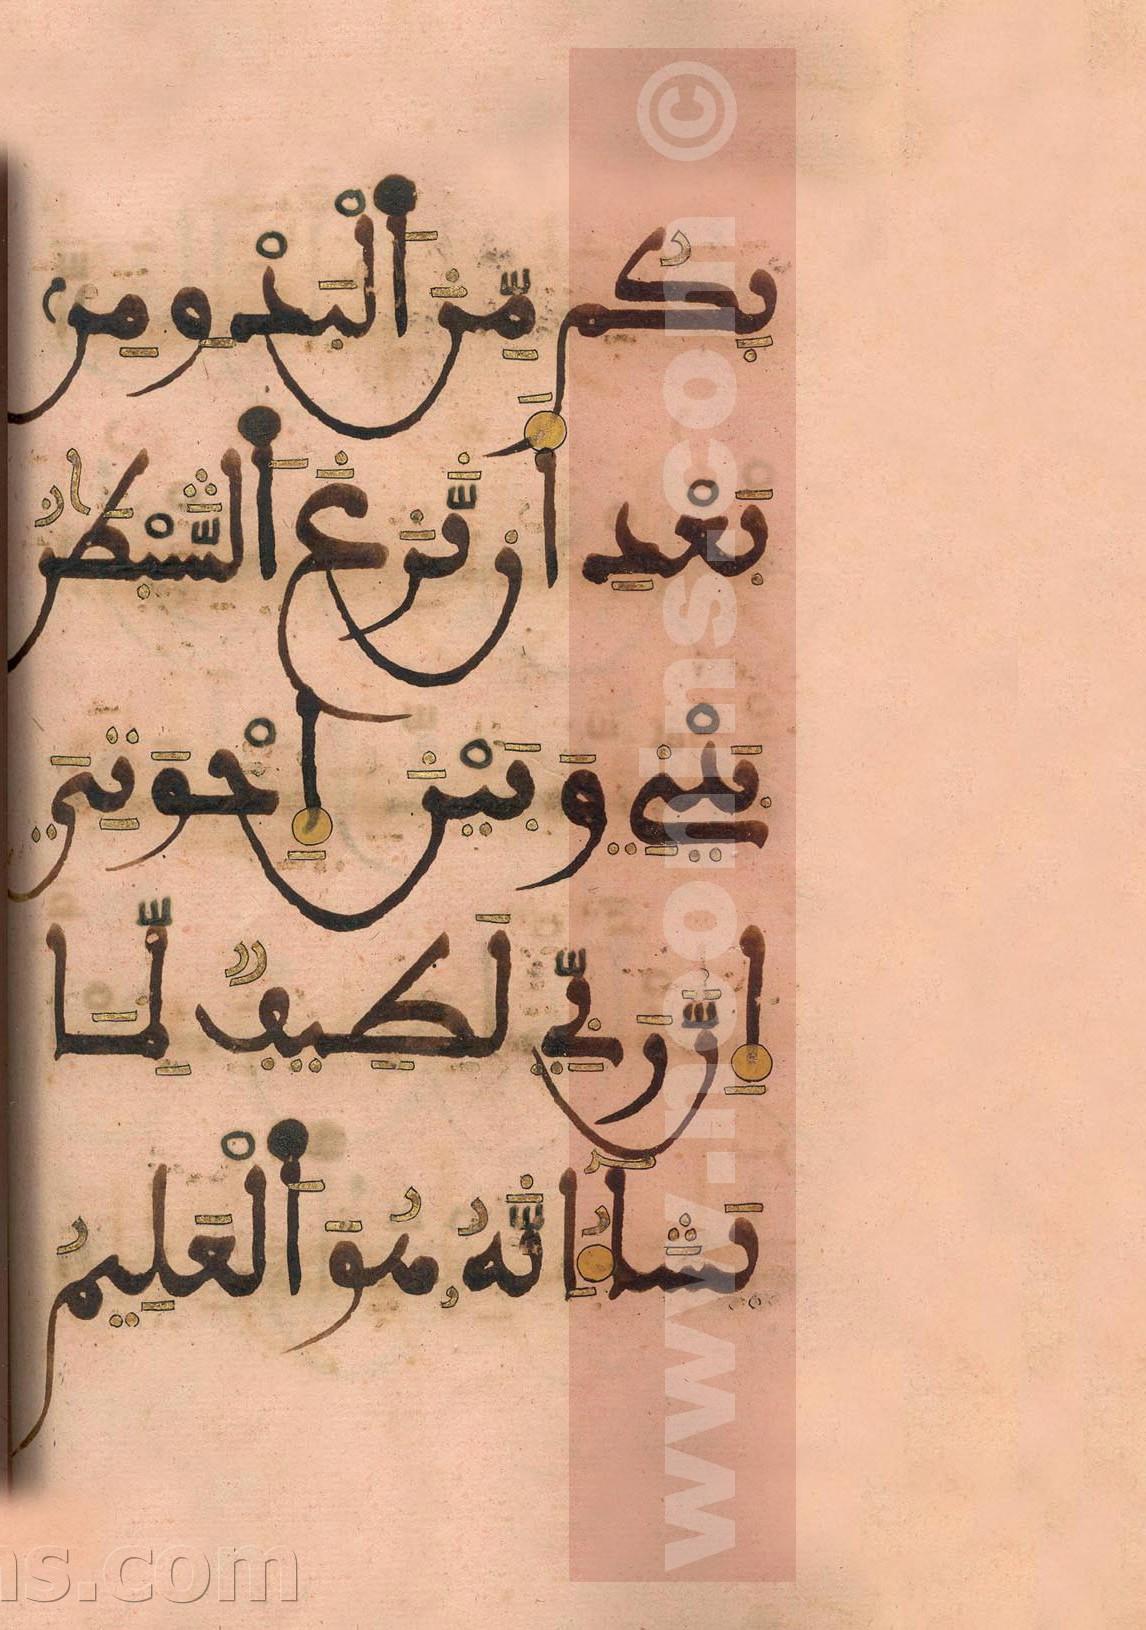 بِكُم مِّنَ اَ۬لْبَدْوِ وَمِن
بَعْدِ أَن نَّزَغَ اَ۬لشَّيْطَٰنُ
بَيْنِے وَبَيْنَ إِخْوَتِے
إِنَّ رَبِّے لَطِيفٌ لِّمَا
يَشَآءُ اِنَّهُۥ هُوَ اَ۬لْعَلِيمُ
www.ncollins.com ©
ns.com